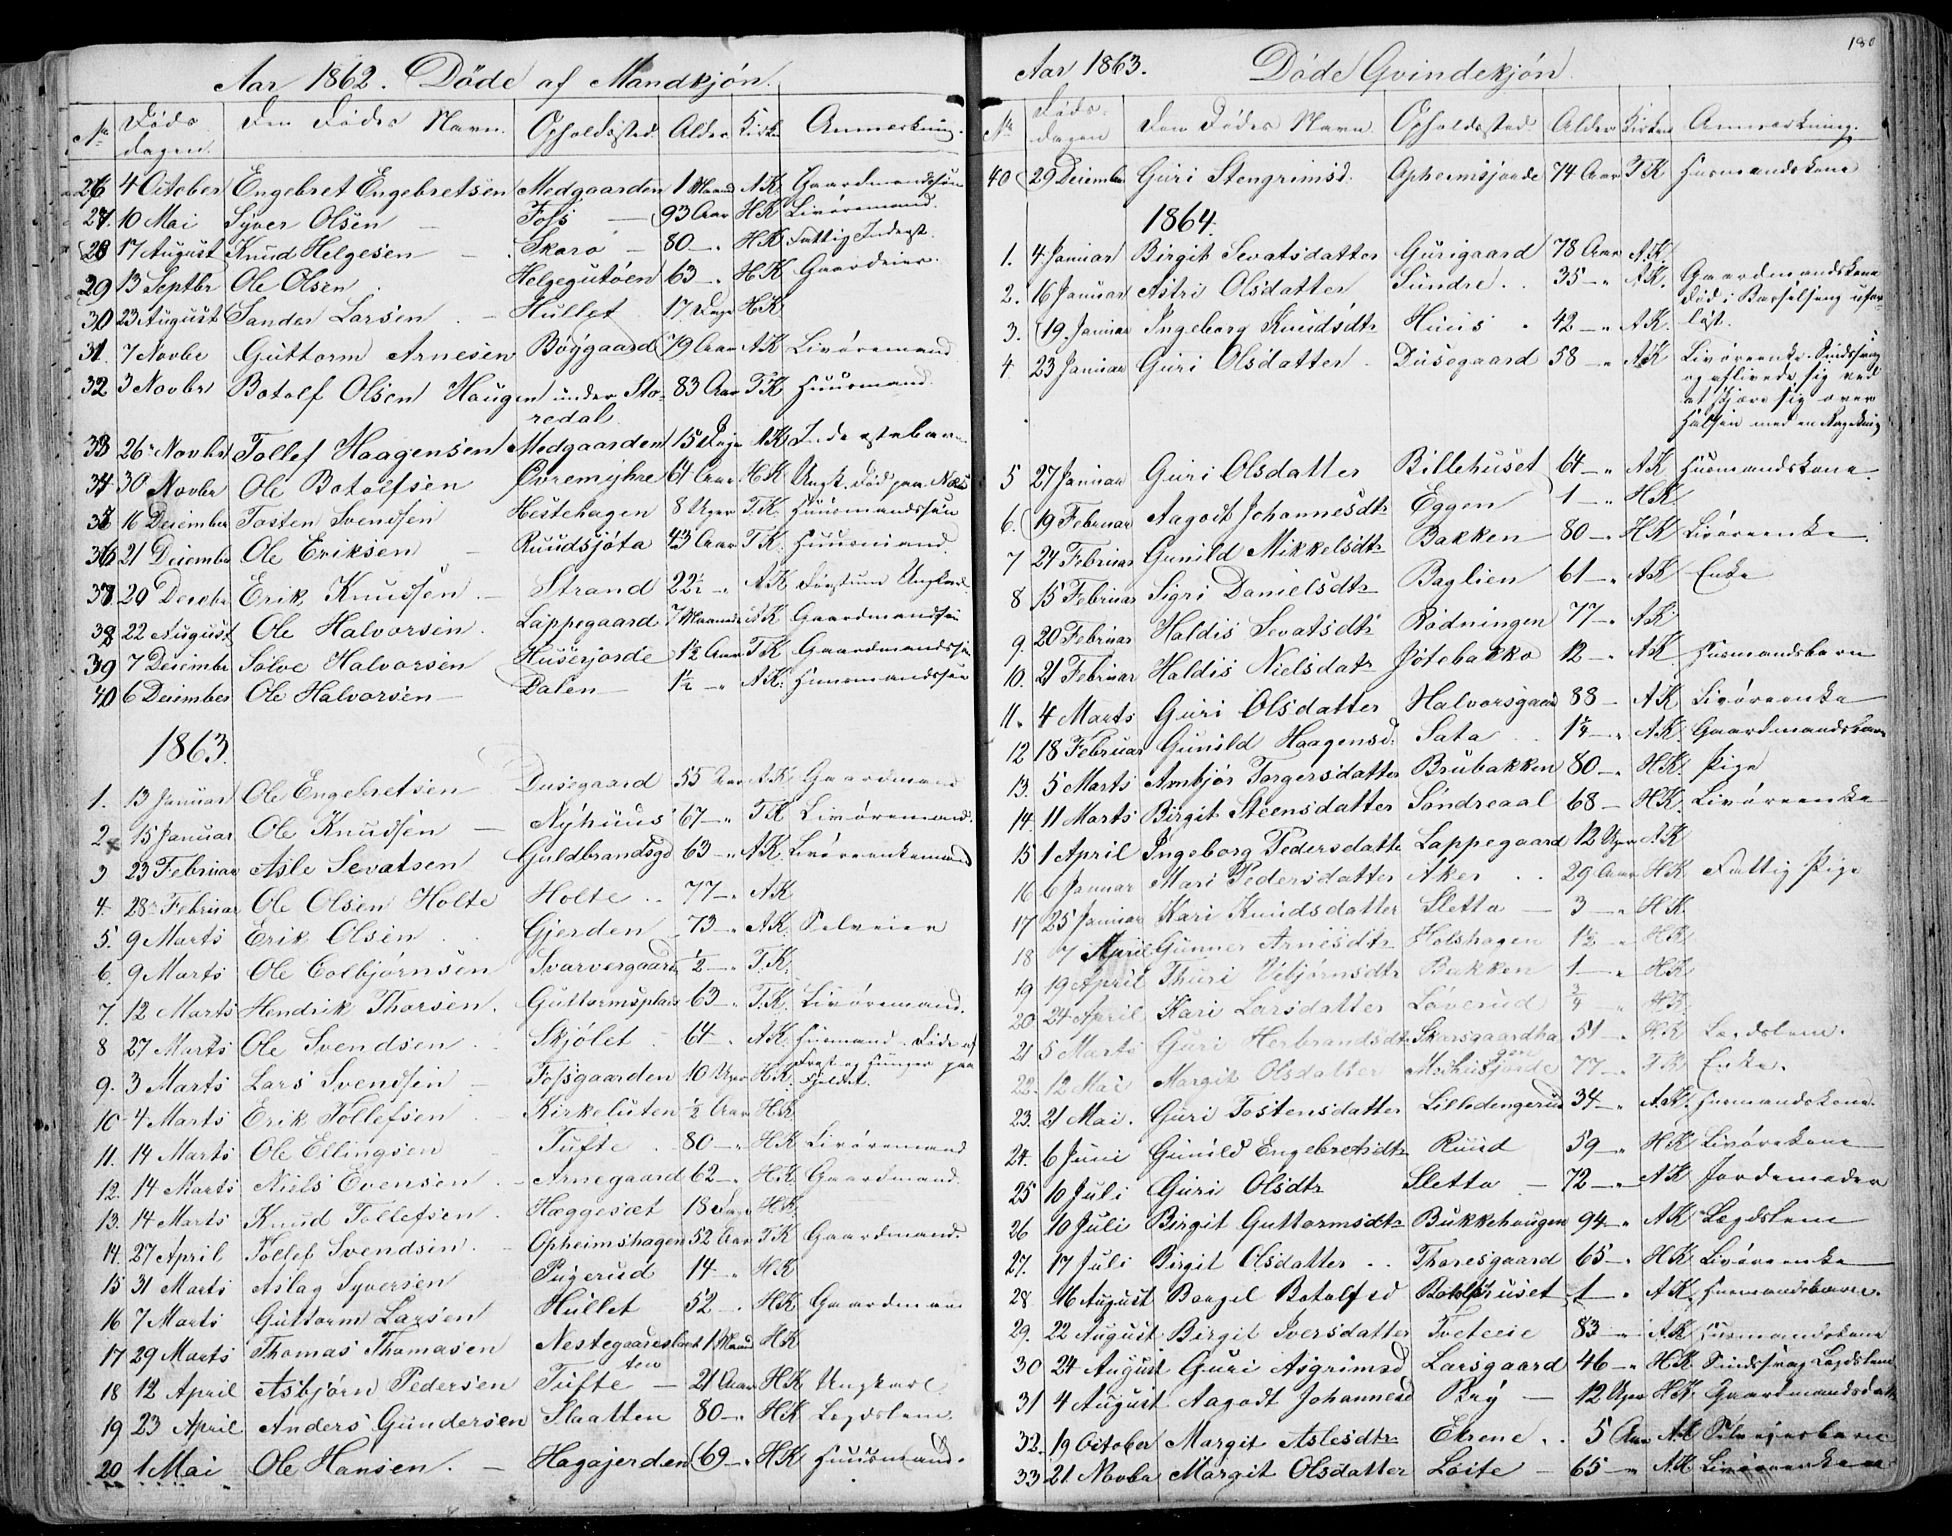 Aar 1862. Døde af Mandkjøn.
No Døds dagen. Den Dødes Navn. Opholdssted. Alder Kirke Anmerkning.
26 4 October Engebret Engebretsen Medgaarden 1 Maaned AK Gaardmandssøn
27. 10 Mai Syver Olsen Fosś 93 Aar HK Livøremand.
28 17 August Knud Helgesen Skaro 80 HK Fattig Inderst.
29 13 Septbr Ole Olsen Helgegutøen 63 HK Gaardeier.
30 23 August Sander Larsen Hullet 17 Dage HK
31. 7 Novbr Guttorm Arnesen Bøygaard 79 Aar AK Livøremand
32 3 Novbr Botolf Olsen Haugen under Sto- 83 Aar TK Huusmand.
redal
33 26 Novbr Tollef Haagensen Medgaarden 15 Dage AK Inderstebarn
34 30 Novbr Ole Botolfsen Øvremyhre 61 Aar HK Ungk. Død paa Næs
35 16 Decembr Tosten Svendsen Hestehagen 8 Uger T.K. Huusmandssøn
36 21 Decembr Ole Eriksen Ruudsjøta 43 Aar T.K. Huusmand.
37 20 Decbr Erik Knudsen. Strand 22½ AK Ungkarl.
38 22 August Ole Halvorsen. Lappegaard 7 Maaneder AK Gaardmandssøn
39 7 Decembr Solve Halvorsen Husejorde 1½ Aar TK Gaardmandssøn
40 6 December Ole Halvorsen Dalen 1½ AK. Huusmandssøn
1863.
1. 13 Januar Ole Engebretsen Dusegaard 55 Aar AK Gaardmand
2 x 15 Januar Ole Knudsen Nyhuus 67 TK Livøremand.
3 23 Februar Asle Sevatsen Guldbrandsgd 63 AK. Livøreenkemand
4. 28 Februar Ole Olsen Holte Holte 77 AK
5. 9 Marts Erik Olsen Gjerden 73 AK. Selveier
6. 9 Marts Ole Colbjørnsen Svarvergaard ½ T.K.
7. 12 Marts Hendrik Thorsen. Guttormsplas 63 T.K. Livøremand.
8 27 Marts Ole Svendsen Skjølet 64 AK. Husmand. Døde af
Frost og Hunger paa
9. 3 Marts Lars Svendsen Fossgaarden 10 Uger HK. Fjeldet.
10 4 Marts Erik Tollefsen Kirkeluten ½ Aar HK
11. 14 Marts Ole Ellingsen Tufte 80 HK Livøremand
12. 14 Marts Niels Evensen Arnegaard 62 HK Gaardmand.
13. 14 Marts Knud Tollefsen. Hæggesæt 18 Dage HK
14. 27 April Tolleb Svendsen. Opheimshagen 52 Aar TK Gaardmand.
15 31 Marts Aslag Syversen Pugerud 14 HK
16 7 Marts Guttorm Larsen Hullet 52 HK Gaardmand
17 29 Marts Thomas Thomasen Nestegaardslaat- 1 Maaned HK
ten
18 12 April Asbjørn Pedersen Tufte 21 Aar HK Ungkarl.
19 23 April Anders Gundersen Slaatten 80 HK Legdslem.
20 1 Mai Ole Hansen. Hagajerden 69 HK Huusmand.

180
Aar 1863. Døde Qvindekjøn.
No Døds- dagen Den Dødes Navn Opholdssted. Alder Kirken Anmerkning.
40 29 December Guri Stengrimsd. Opheimsjorde 74 Aar TK Husmandskone
1864.
1. 4 Januar Birgit Sevatsdatter Gurigaard 78 Aar AK
2. 16 Januar Astri Olsdatter Sundre. 35 AK. Gaardmandskone
død i Barselseng ufor-
3. 19. Januar Ingeborg Knudsdtr Huus 42 AK. løst.
4. 23 Januar Guri Olsdatter Dusegaard 58 AK Livøreenke. Sindssvag
og aflivede sig ved
at skjære sig over
Halsen med en Ragekniv
5 27 Januar Guri Olsdatter Billehuset 64 AK Husmandskone.
6. 19 Februar Aagoit Johannesdtr Eggen 1 HK
7 24 Februar Gunild Mikkelsdtr Bakken 80 HK Livøreenke.
8 15 Februar Sigri Danielsdtr Baglien 61 AK Enke
9. 20 Februar Haldis Sevatsdtr Rødningen 77 AK
10. 21 Februar Haldis Nielsdatr Jøtebakko 12 AK Husmandsbarn
11. 4 Marts Guri Olsdatter Halvorsgaard 88 AK Livøreenke
12 18 Februar Gunild Haagensd. Sata 1¼ AK. Gaardmandsbarn
13. 5 Marts Ambjør Torgersdatter Brubakken 80 HK. Pige
14. 11 Marts Birgit Steensdatter Søndreaal 68 HK Livøreenke
15 1 April Ingeborg Pedersdattr Lappegaard 12 Uger AK
16 6 Januar Mari Pedersdatter Aker 29 Aar HK Fattig Pige
17 25 Januar Kari Knudsdatter Sletto 3 HK
18 7 April Gunner Arnesdtr Holshagen 1½ HK
19 19 April Thuri Vebjørnsdtr Bakken 1 HK
20 24 April Kari Larsdatter Løverud ¾ HK
21 5 Marts Guri Herbrandsdtr Skarsgaardha 51 HK Legdslem.
gen
22. 12 Mai Margit Olsdatter 77 TK Enke.
23. 21 Mai. Guri Tostensdatter Lilledengerud 34 AK. Husmandskone
24. 6 Juni Gunild Engebretsdtr Ruud 59 HK Livørekone
25 10 Juli Guri Olsdtr Sletto 72 AK Jordemoder
26 10 Juli Birgit Guttormsdtr Bukkehaugen 94 AK Lægdslem
27. 17 Juli Birgit Olsdatter Thoresgaard 65 HK Livøreenke
28 16 August Boegel Botolfsd Botolfhuset 1 AK Husmandsbarn.
29. 22 August Birgit Iversdatter Tveteeie 83 AK Husmandskone
30 24 August Guri Asgrimsd Larsgaard 46 HK Sindssvag Legdslem
31 4 August Aagodt Johannesd Ryy 12 Uger HK Gaardmandsdatr
32. 19 October Margit Aslesdtr Ekrene 5 Aar AK Selveierbarn
33 21 Novbr Margit Olsdatter Loite 65 AK Livøreenke